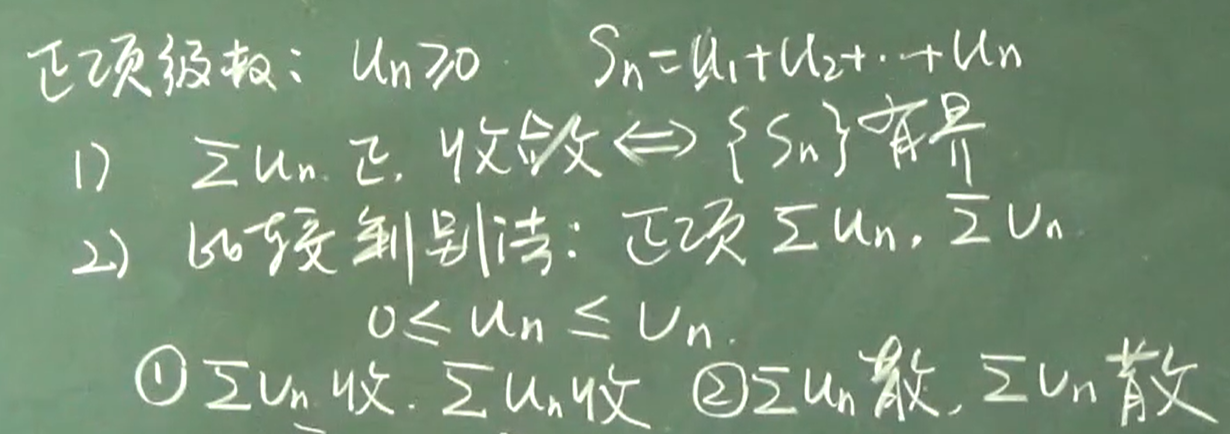 正项级数: Un≥0 Sn=U1+U2+··+Un
1) ΣUn 正, 收敛⇔{Sn}有界
2) 比较判别法: 正项ΣUn, ΣVn
0≤Un≤Vn.
①ΣVn收. ΣUn收 ②ΣUn散, ΣVn散